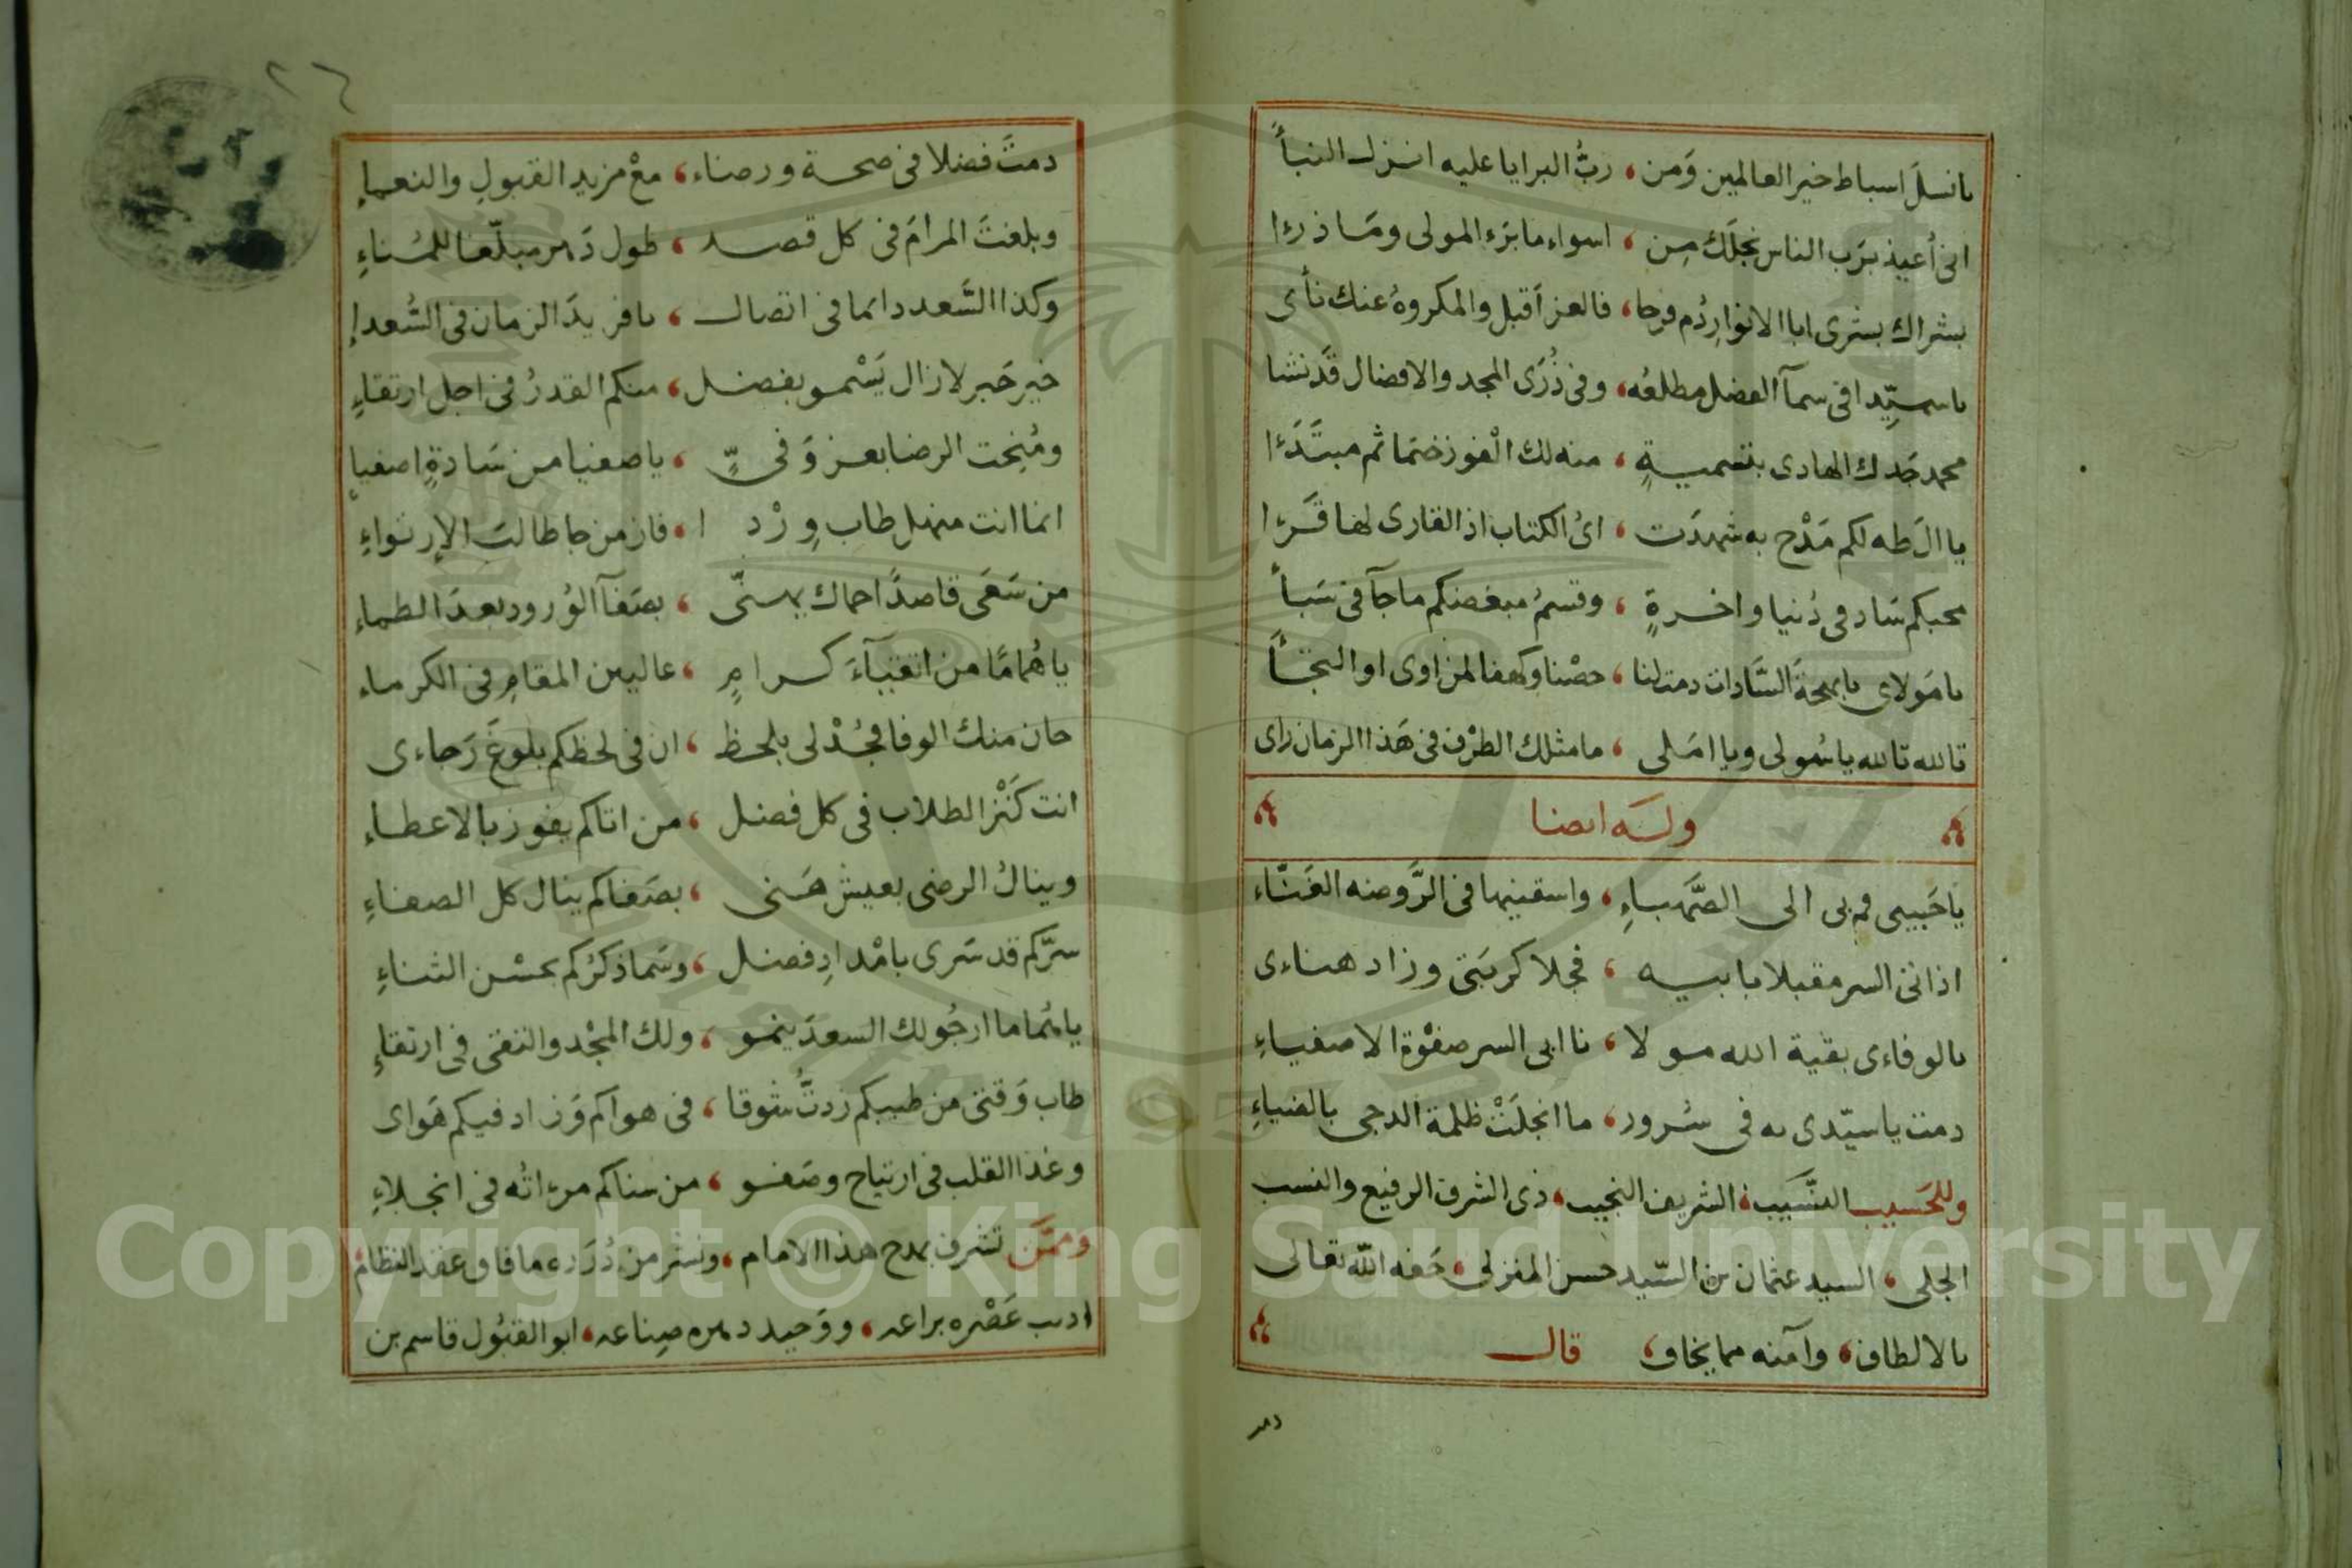 يانسلَ اسباط خير العالمين وَمن ، ربُّ البرايا عليه انزل النبأَ
انى أعيذ برَب الناس نجلَك مِن ، اسواءِ ما برَء المولى ومَا ذرءا
بشراك بشرى ابا الانوارِ دُم فرحا ، فالعز اَقبل والمكروهُ عنك نأى
يا سيّدا فى سمآ الفضل مطلعُه ، وفى ذُرَى المجد والافضال قَد نشا
محمد جَدك الهادى بتسميةٍ ، منه لك الْفوز ختمَا ثم مبتَدَءا
يا الَ طه لكم مَدْح به شهدَت ، اىُ الكتاب اذ القارى لها قَرَءا
محبكم سَاد فى دُنيا واخرةٍ ، وقسمُ مبغضكم ما جآ فى سَبأَ
يا مَولاى يا بهجةَ السَّادات دمت لنا ، حصْنا وكهفا لمن اوى او التجَأَ
تالله تالله يا سُولى ويا امَلى ، ما مثلك الطرْف فى هَذا الزمان راى
ولَه ايضا
يا حَبيبى قم بى الى الصَّهباءِ ، واسقنيها فى الرَّوضه الغَنّاء
اذ اتى السر مقبلا بابيه ، فجلا كربَتى وزاد هناءى
بالوفاءى بقية الله مولا ، نا ابى السر صفْوة الاصفياءِ
دمت يا سيّدى به فى سُرور ، ما انجلَتْ ظلمة الدجى بالضياءِ
وللحَسيب النَّسيب ، الشريف النجيب ، ذى الشرف الرفيع والنسب
الجلى ، السيد عثمان بن السّيد حسن المنزلى ، حَفه اللّه تعالى
بالالطاف ، وآمنه مما يخاف ، قال
دمر
٢٦
دمتَ فضلا فى صحة ورضاء ، معْ مزيد القبولِ والنعماءِ
وبلغتَ المرامَ فى كل قصد ، طول دَهر مبلّغا للمُناءِ
وكذا السَّعد دائما فى اتصال ، يا فريدَ الزمان فى السُّعداءِ
خير حَبر لازال يَسْمو بفضل ، منكم القدرُ فى اجل ارتقاءٍ
ومُنِحت الرضا بعز وَفىٍّ ، يا صفيا من سَادةٍ اصفياءِ
انما انت منهل طاب وِرْدا ، فاز من جا طالبَ الإرتواءِ
من سَعَى قاصدًا حماك يهنّى ، بصَفآ الوُرود بعدَ الظماءِ
يا هُمامًا من اتقيآءَ كرامٍ ، عاليين المقامِ فى الكرماء
حان منك الوفا فجُدْ لى بلحظ ، ان فى لحظكم بلوغَ رَجاءى
انت كَنْز الطلاب فى كل فضل ، من اتاكم يفوز بالاعطاءِ
وينالُ الرضى بعيش هَنى ، بصَفاكم ينال كل الصفاءِ
سرّكم قد سَرى بامْدادِ فضل ، وسَما ذكرُكم بحسْن الثناءِ
يا هُماما ارجُو لك السعدَ ينمو ، ولك المجْد والتقى فى ارتقاءٍ
طاب وَقتى من طيبكم زدتُّ شوقا ، فى هواكم وَزاد فيكم هَواى
وغدا القلب فى ارتياح وصَفو ، من سناكم مرءاتُه فى انجلاءِ
وممَّن تشرف بمدح هذا الامام ، ونشر من دُرَره ما فاق عقد النظام
اديب عَصْره براعه ، ووَحيد دهره صِناعه ، ابو القبُول قاسم بن
Copyright © King Saud University